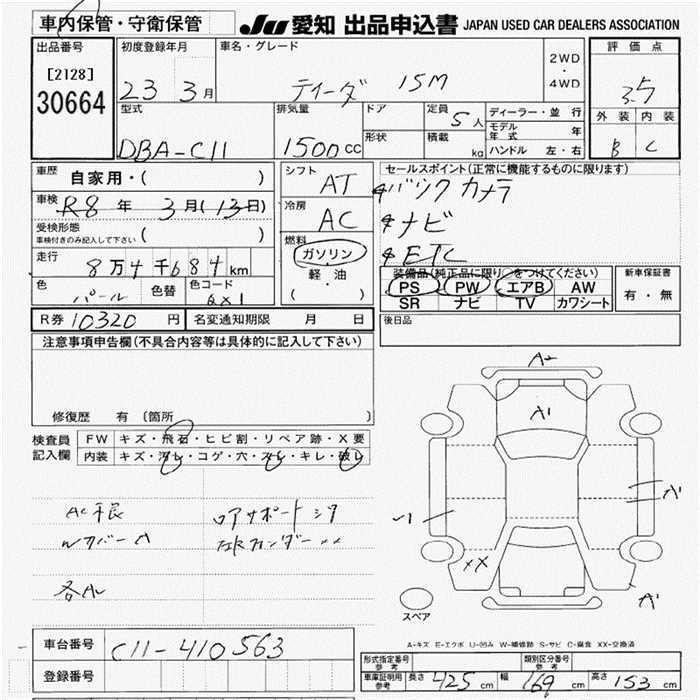 車内保管・守衛保管
JU 愛知 出品申込書 JAPAN USED CAR DEALERS ASSOCIATION
出品番号
[2128]
30664
初度登録年月
23 3月
車名・グレード
ティーダ 15M
2WD
・
4WD
評価点
3.5
外装 内装
B C
型式
DBA-C11
排気量
1500 cc
ドア
形状
定員 5人
積載 kg
ディーラー・並行
モデル年式 年
ハンドル 左・右
車歴
自家用・( )
車検
R8年 3月(13日)
受検形態
車検付きのみ記入して下さい ( )
走行
8万4千684km
色
パール
色替
色コード
QX1
シフト
AT
冷房
AC
燃料
ガソリン
・
軽・油
( )
セールスポイント(正常に機能するものに限ります)
バック カメラ
ナビ
ETC
装備品(純正品に限り○をつけてください)
PS PW エアB AW
SR ナビ TV カワシート
新車保証書
有・無
R券 10320 円
名変通知期限 月 日
後日品
注意事項申告欄(不具合内容等は具体的に記入して下さい)
修復歴 有 (箇所 )
検査員
記入欄
FW キズ・飛石・ヒビ割・リペア跡・X要
内装 キズ・汚レ・コゲ・穴・スレ・キレ・破レ
A2
A1
XX
スペア
A-キズ E-エクボ U-凹み W-補修跡 S-サビ C-腐食 XX-交換済
車台番号
C11-410563
登録番号
形式指定番号
参考
類別区分番号
参考
車庫証明用
参考
長さ 425 cm 幅 169 cm 高さ 153 cm